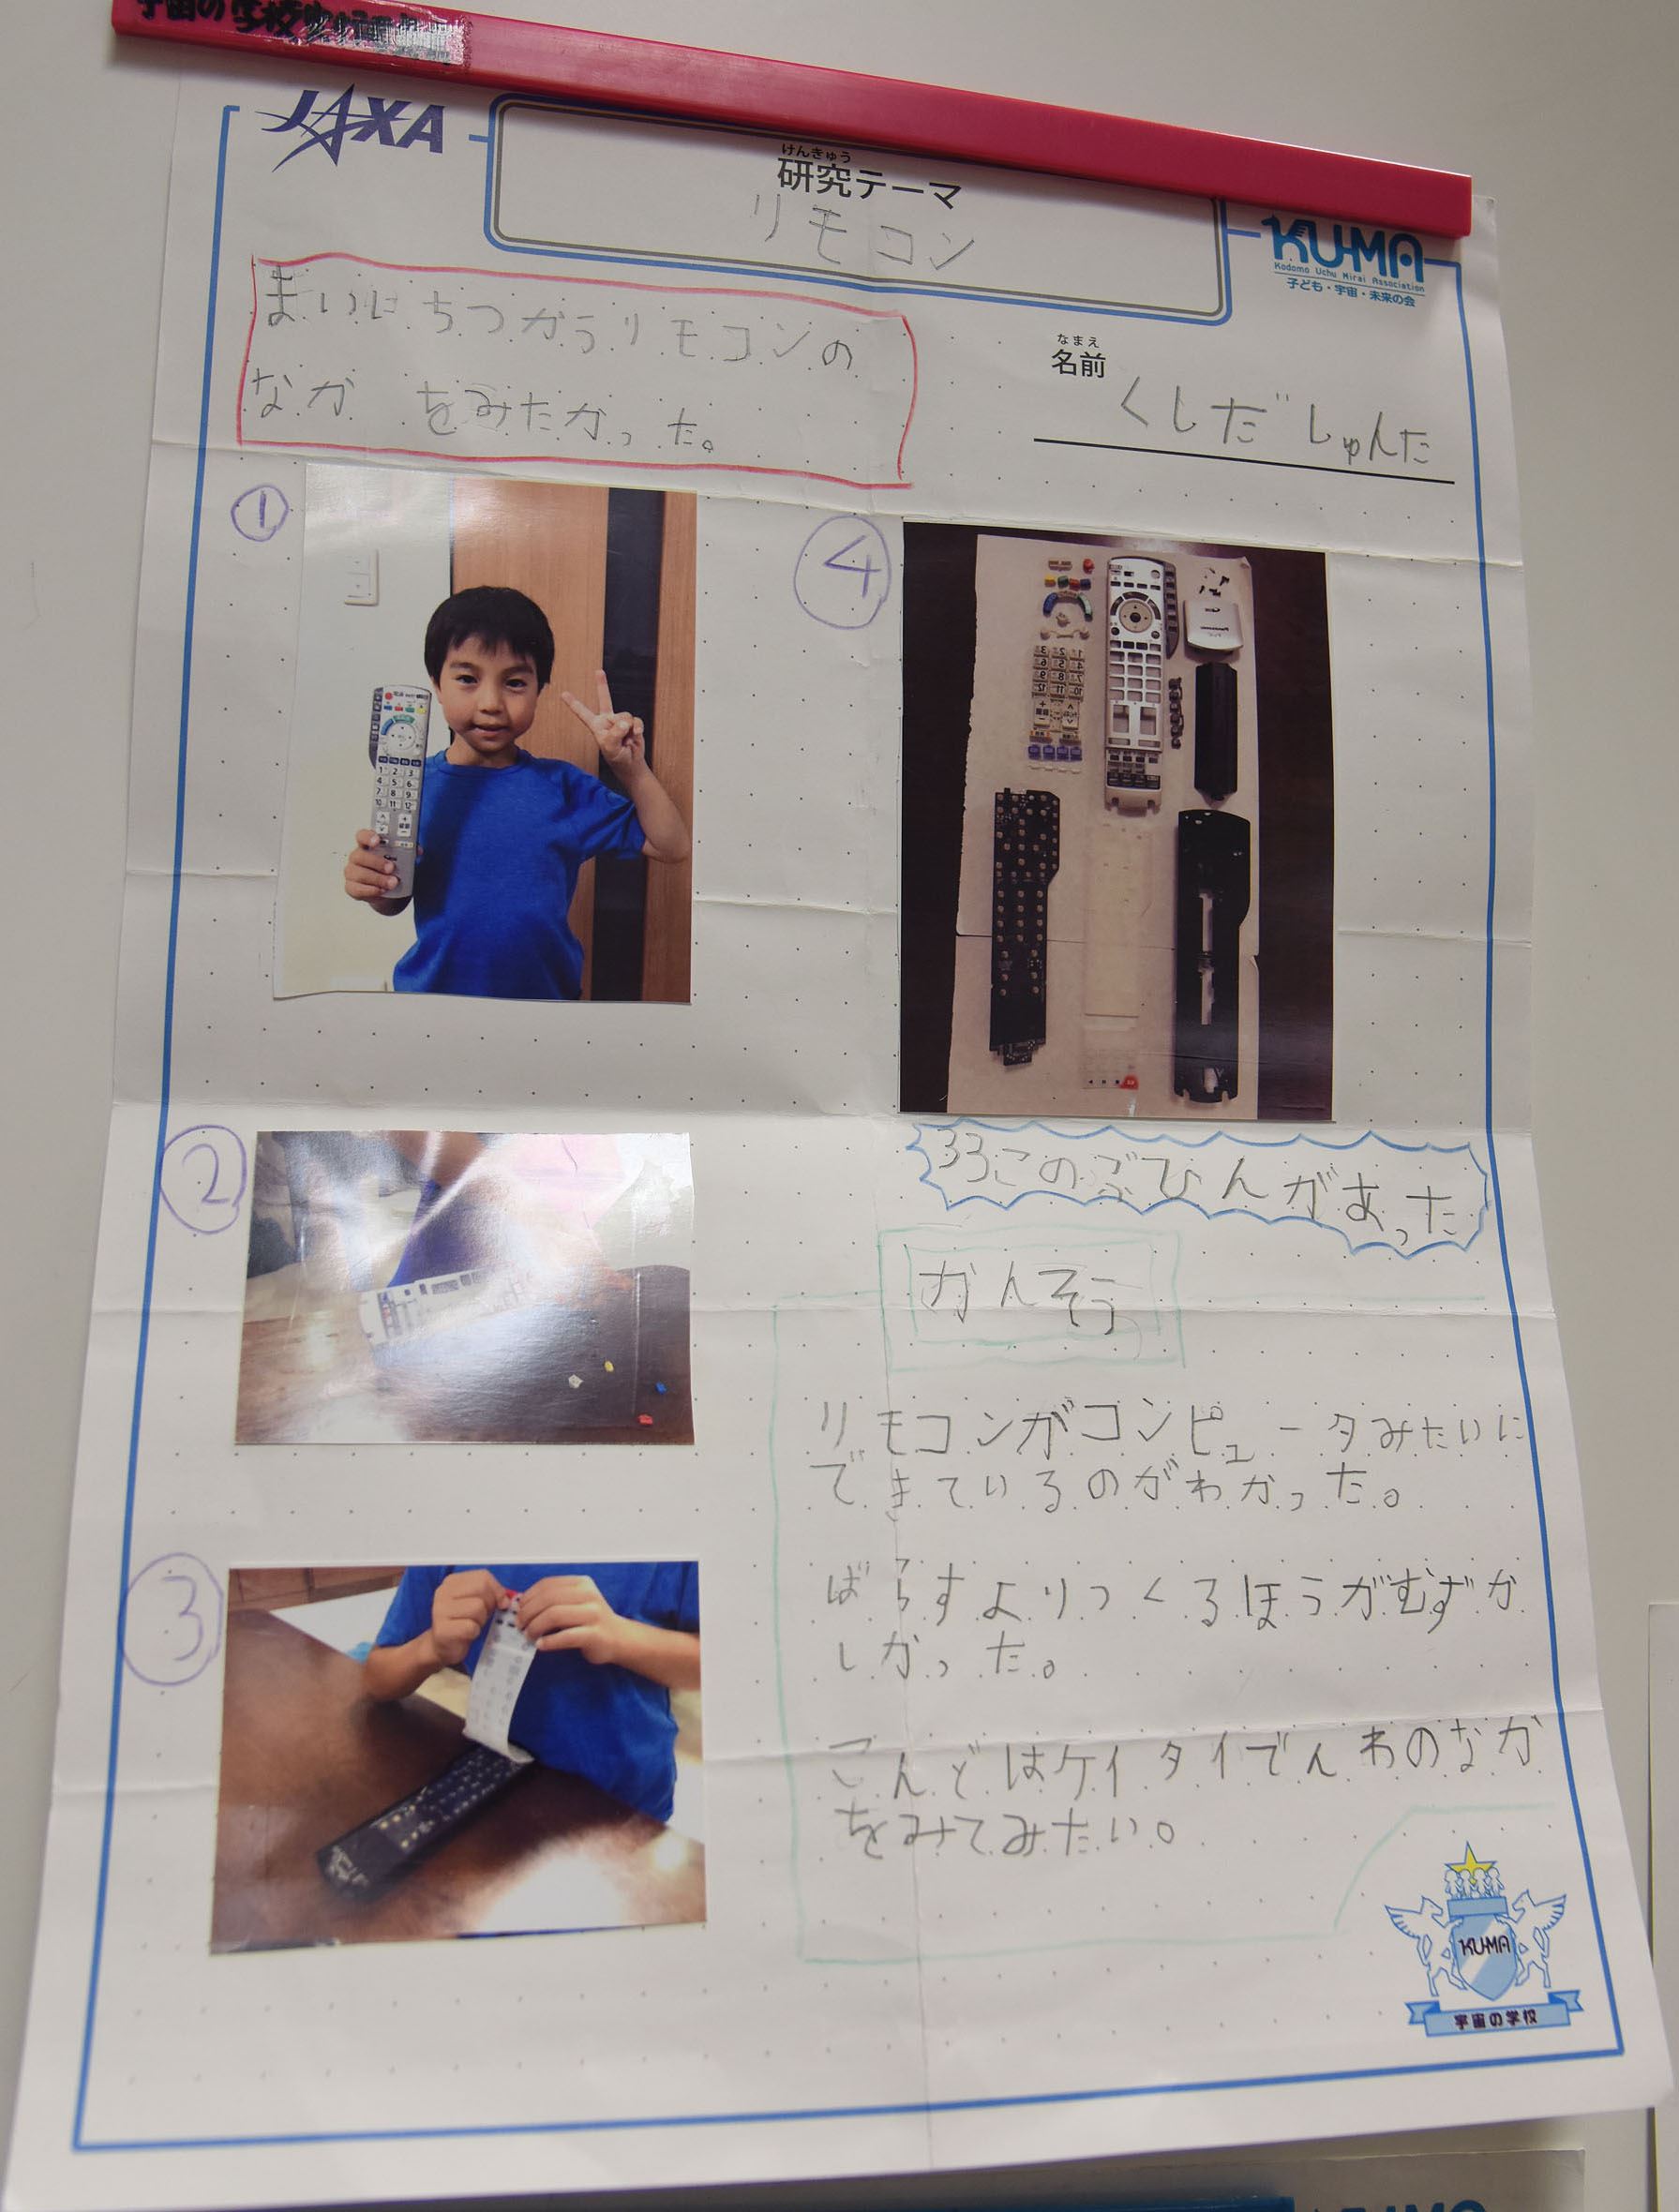 宇宙の学校
JAXA
けんきゅう
研究テーマ
リモコン
KU-MA
Kodomo Uchu Mirai Association
子ども・宇宙・未来の会
まいにちつかうリモコンの
なか をみたかった。
なまえ
名前
くしだ しゅんた
①
④
②
33このぶひんがあった
かんそう
リモコンがコンピュータみたいに
できているのがわかった。
③
ばらすよりつくるほうがむずか
しかった。
こんどはケイタイでんわのなか
をみてみたい。
KU-MA
宇宙の学校